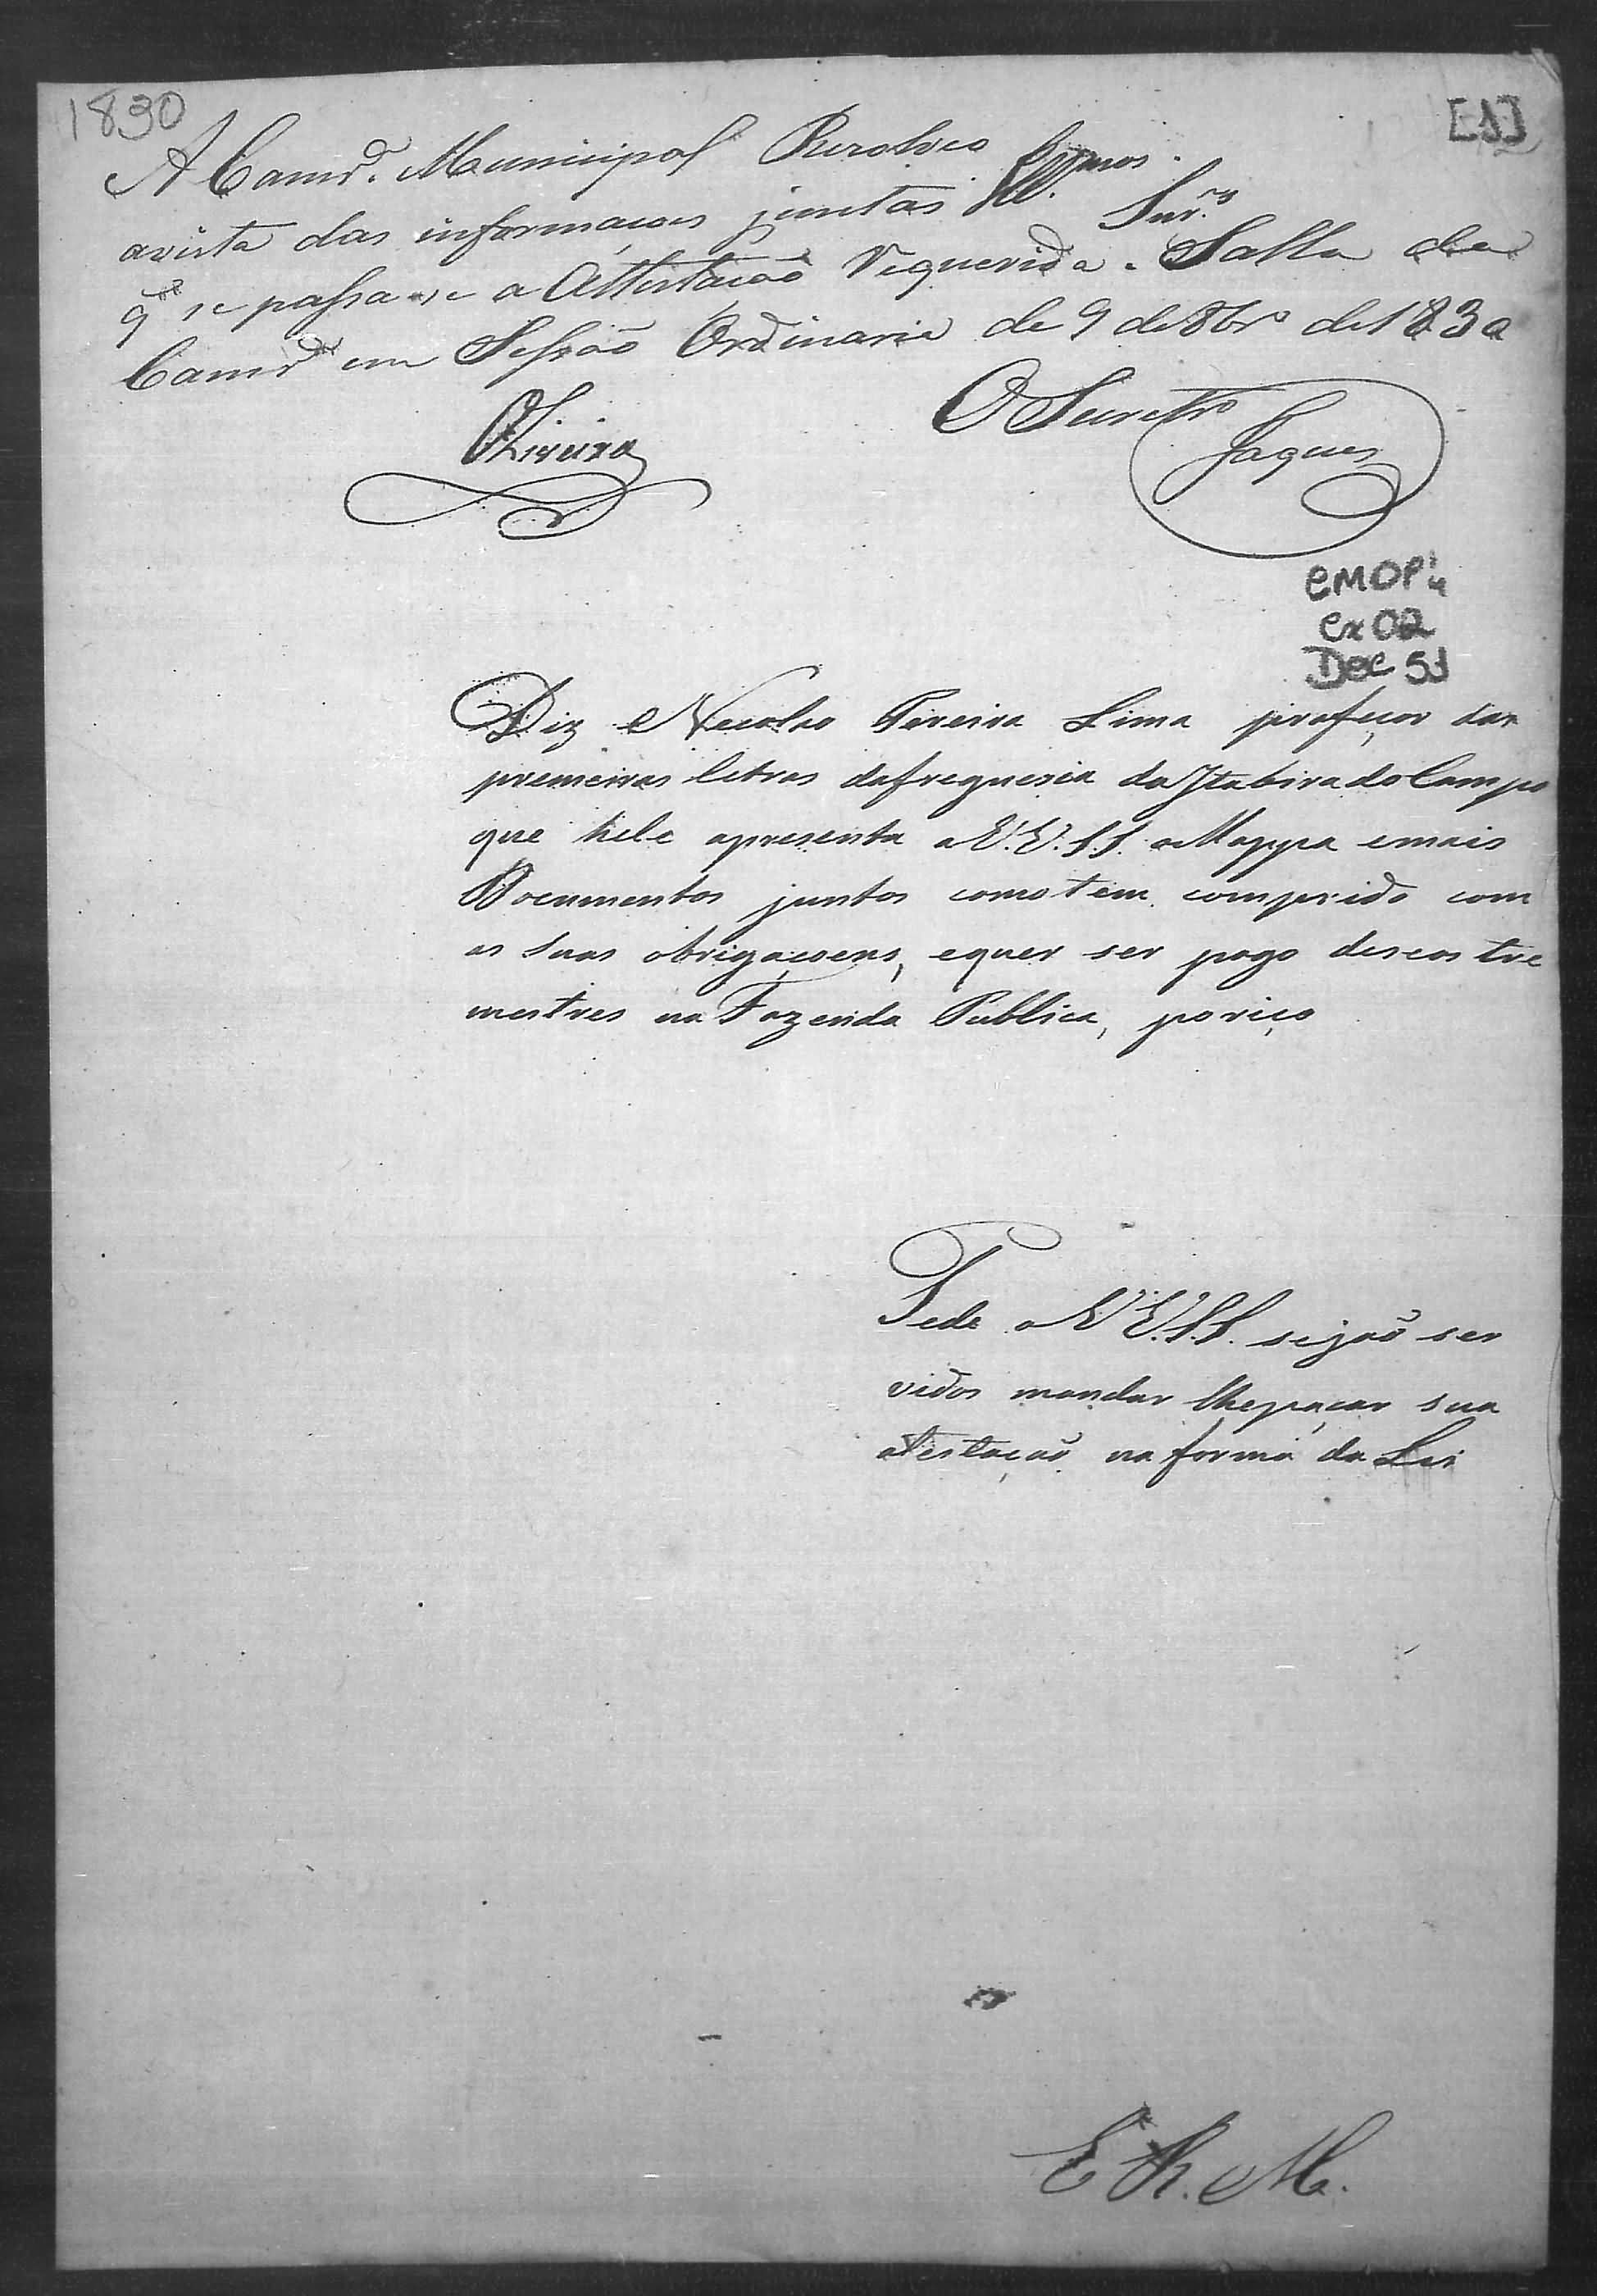 1830
[1]
A Camrª. Municipal Rezolveo
Illmos. Snr.es
avista das informaçoes juntas
qᵉ se passa-se a Attestação requerida. Salla da
Camrª em Sessão Ordinaria de 9 de 8brº de 1830
O Secretrº
Jaques
Oliveira
CMOP
Cx 02
Doc 51
Diz Necolao Pereira Lima profeçor das
premeiras letras dafreguesia da Itabira do Campo
que hele apresenta a V.V.S.S. o Mappa emais
Documentos juntos como tem comprido com
as suas obrigaçoens, equer ser pago deseos tre
mestres na Fazenda Publica, poriço
Pede a V V.S.S. sejaõ ser
vidos mandar lhepaçar sua
atestaçaõ na forma da Lei
E R. M.